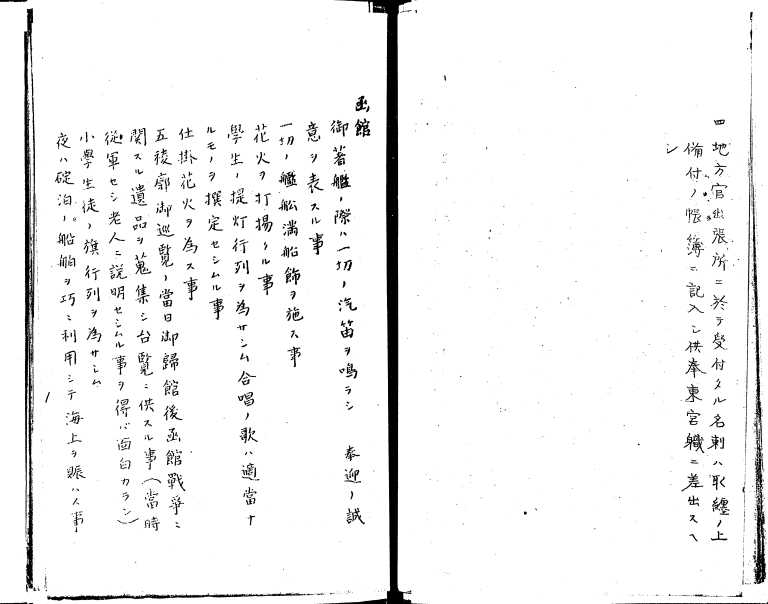 四 地方官出張所ニ於テ受付タル名刺ハ取纏ノ上
備付ノ帳簿ニ記入シ供奉東宮職ニ差出スヘ
シ
函館
御著艦ノ際ハ一切ノ汽笛ヲ鳴ラシ 奉迎ノ誠
意ヲ表スル事
一切ノ艦舩満船飾ヲ施ス事
花火ヲ打揚クル事
學生ノ提灯行列ヲ為サシム合唱ノ歌ハ適當ナ
ルモノヲ撰定セシムル事
仕掛花火ヲ為ス事
五稜廓御巡覧ノ當日御歸館後函館戰爭ニ
関スル遺品ヲ蒐集シ台覧ニ供スル事(當時
從軍セシ老人ニ説明セシムル事ヲ得ハ面白カラン)
小學生徒ノ旗行列ヲ為サシム
夜ハ碇泊ノ船舶ヲ巧ニ利用シテ海上ヲ賑ハス事